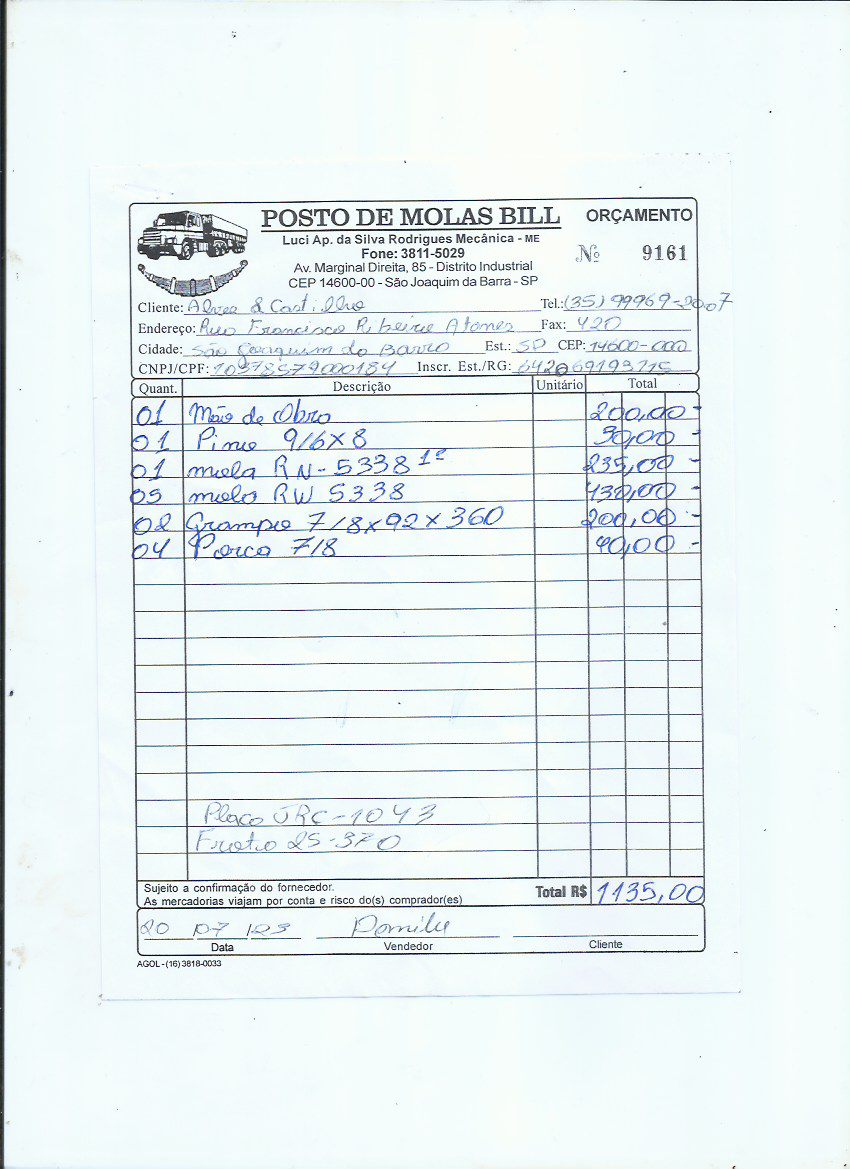 POSTO DE MOLAS BILL ORÇAMENTO
Luci Ap. da Silva Rodrigues Mecânica - ME
Fone: 3811-5029
Nº 9161
Av. Marginal Direita, 85 - Distrito Industrial
CEP 14600-00 - São Joaquim da Barra - SP
Cliente: Alves & Castilho Tel.: (35) 99969-2007
Endereço: Rua Francisco Ribeiro Fax: 420
Cidade: São Joaquim da Barra Est.: SP CEP: 14600-000
CNPJ/CPF: Inscr. Est./RG:
Quant. Descrição Unitário Total
01 Mão de Obra 200,00 -
01 Pino 9/6x8 30,00 -
01 mola RN-5338 1ª 235,00 -
05 mola RW 5338 430,00 -
02 Grampo 7/8x92x360 200,00 -
04 Porca 7/8 40,00 -
Placa JRC-1043
25-370
Sujeito a confirmação do fornecedor.
As mercadorias viajam por conta e risco do(s) comprador(es) Total R$ 1135,00
20 07 123
Data Vendedor Cliente
AGOL - (16) 3818-0033